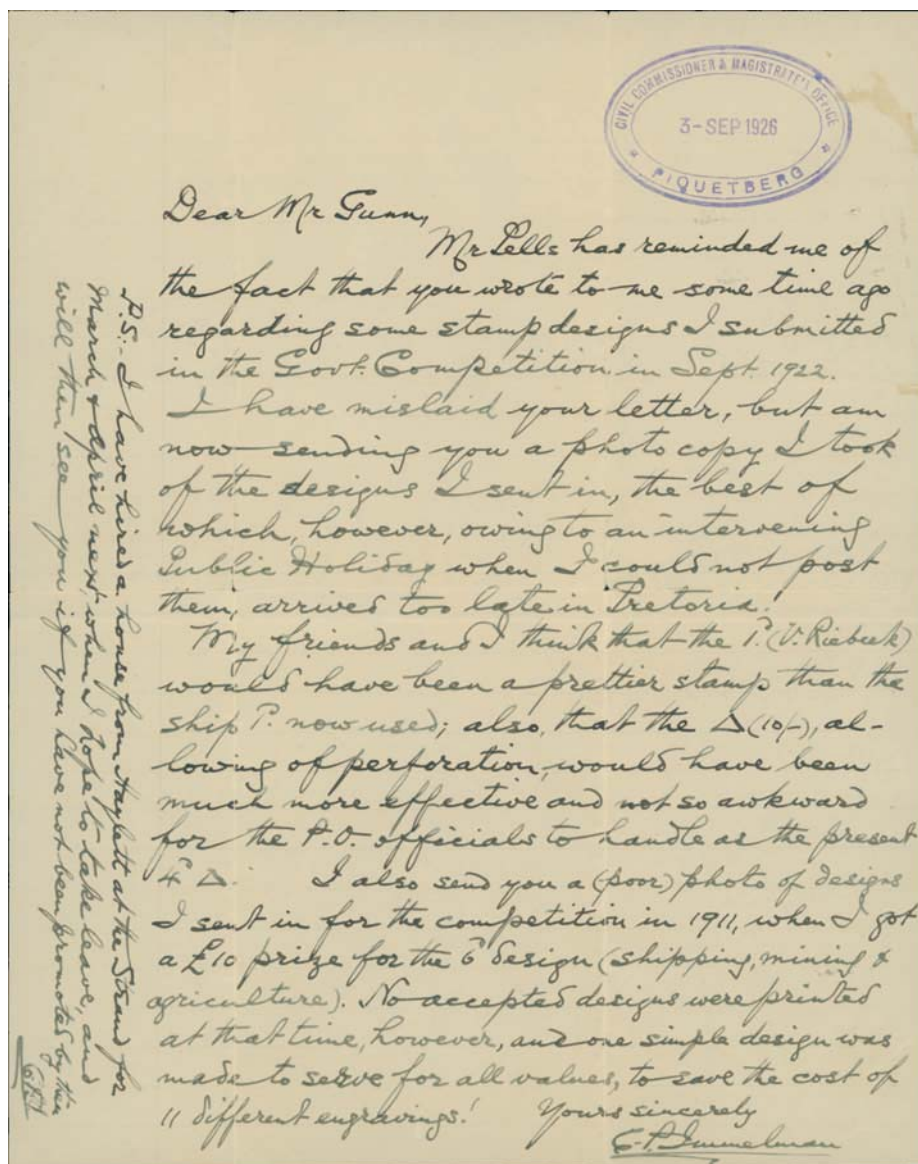 CIVIL COMMISSIONER & MAGISTRATE'S OFFICE
3-SEP 1926
PIQUETBERG
Dear Mr Gunn,
Mr Pells has reminded me of
the fact that you wrote to me some time ago
regarding some stamp designs I submitted
in the Govt. Competition in Sept. 1922.
I have mislaid your letter, but am
now sending you a photo copy I took
of the designs I sent in, the best of
which, however, owing to an intervening
Public Holiday when I could not post
them, arrived too late in Pretoria.
My friends and I think that the 1ᵈ (V. Riebeek)
would have been a prettier stamp than the
ship 1ᵈ now used; also, that the Δ (10/-), al-
lowing of perforation, would have been
much more effective and not so awkward
for the P.O. officials to handle as the present
4ᵈ Δ. I also send you a (poor) photo of designs
I sent in for the competition in 1911, when I got
a £10 prize for the 6ᵈ design (shipping, mining &
agriculture). No accepted designs were printed
at that time, however, and one simple design was
made to serve for all values, to save the cost of
11 different engravings!
Yours sincerely
C.P. Immelman
P.S:- I have hired a house from Haylett at the Strand for
March & April next, when I hope to take leave, and
will then see you if you have not been promoted by then